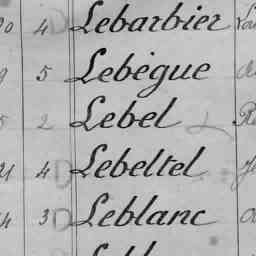 4 Lebarbier
5 Lebègue
2 Lebel
4 Lebeltel
3 Leblanc